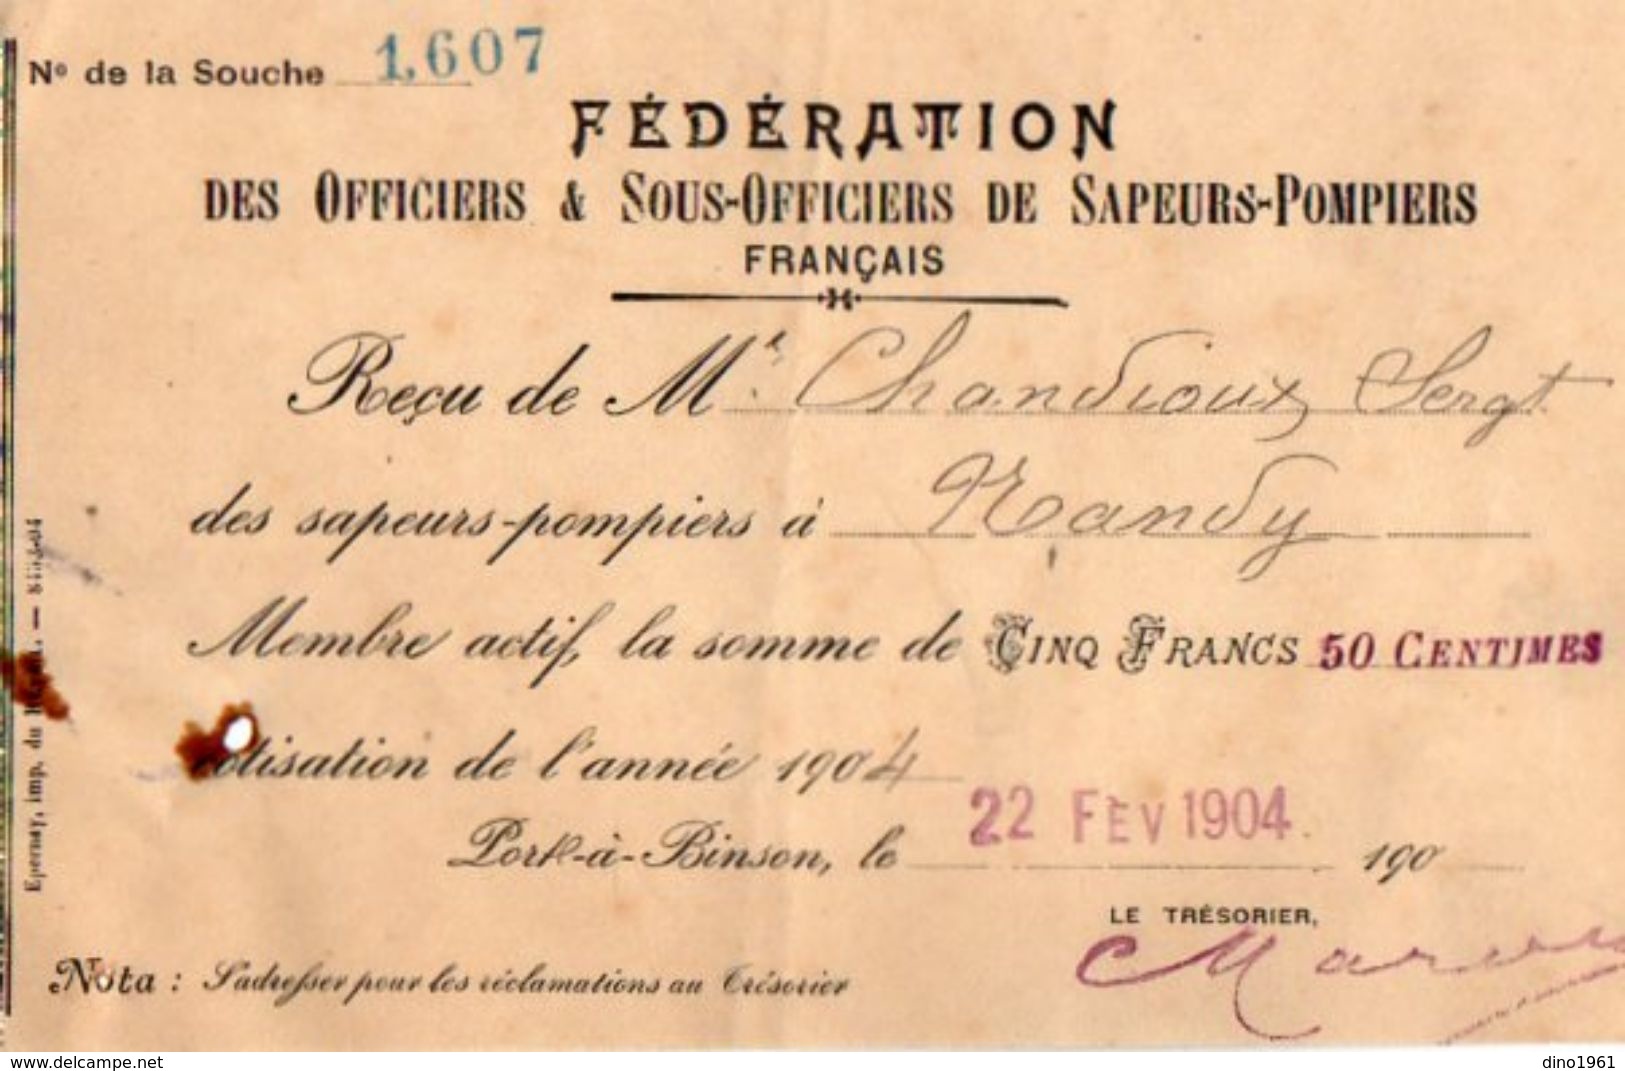 N° de la Souche 1,607
FÉDÉRATION
DES OFFICIERS & SOUS-OFFICIERS DE SAPEURS-POMPIERS
FRANÇAIS
Reçu de Mr Chandioux Sergt
des sapeurs-pompiers à Nandy
Membre actif, la somme de CINQ FRANCS 50 CENTIMES
cotisation de l'année 1904
Port-à-Binson, le 22 FEV 1904 190
LE TRÉSORIER,
Nota : S'adresser pour les réclamations au Trésorier
Epernay, imp. du
www.delcampe.net
dino1961